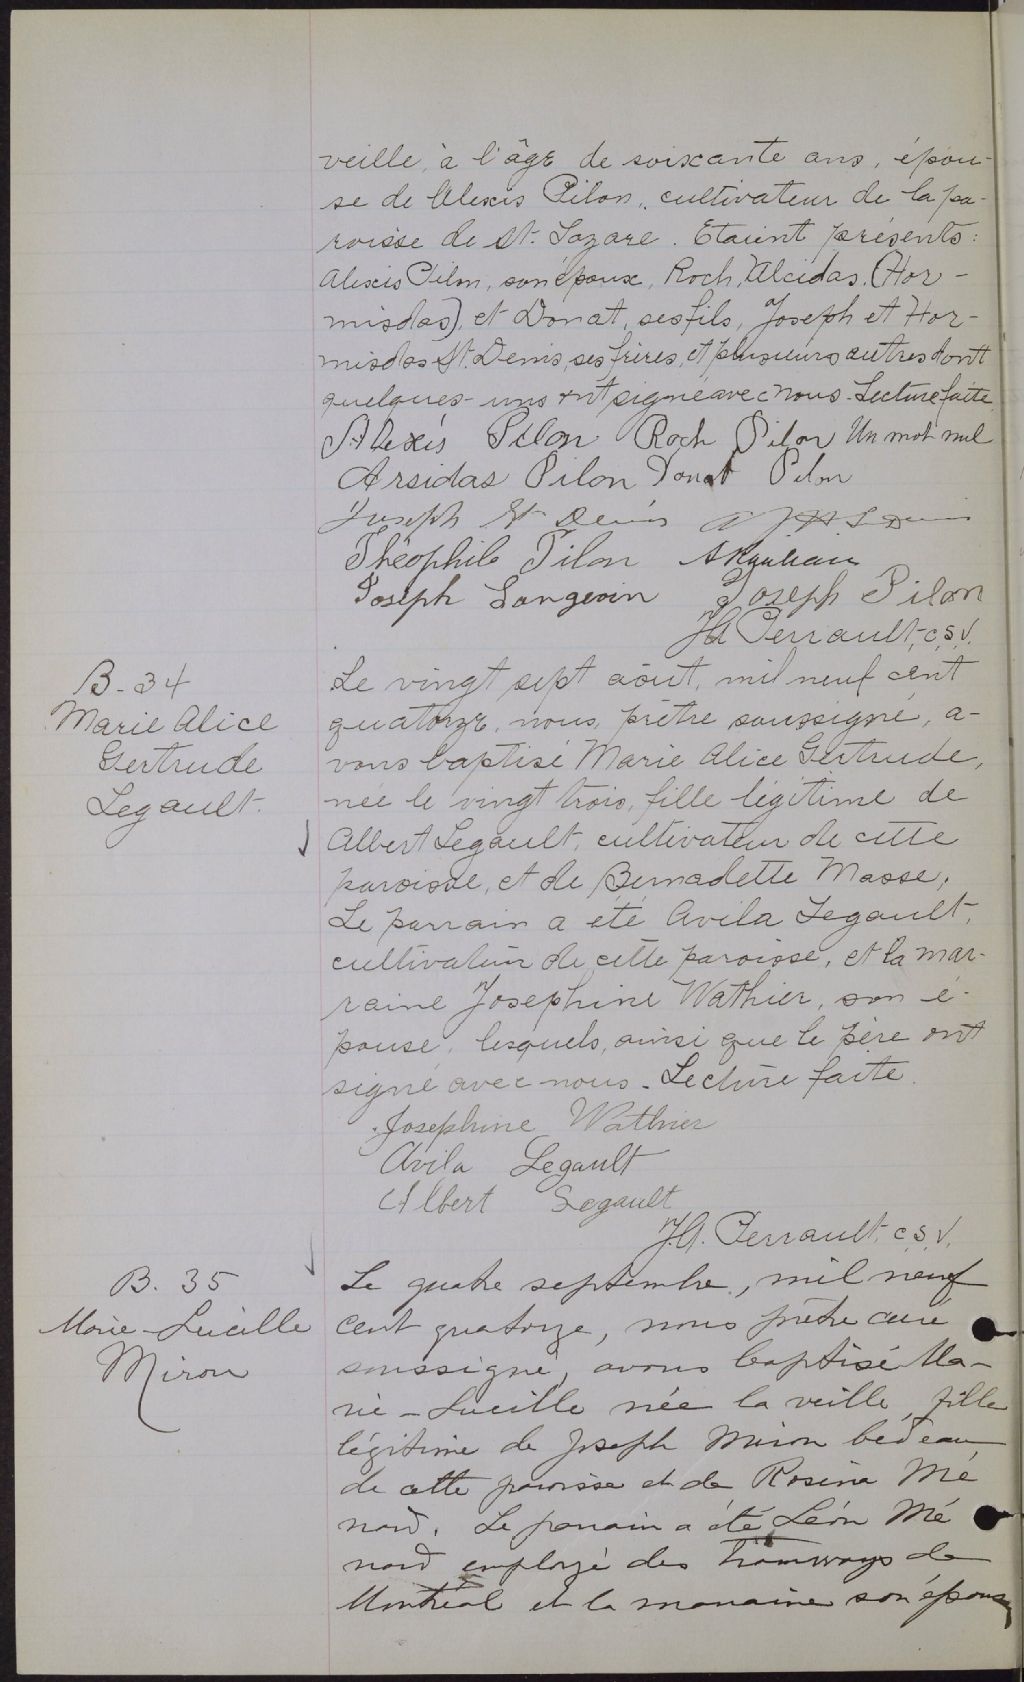 veille, à l'âge de soixante ans, épou-
se de Alexis Pilon, cultivateur de la pa-
roisse de St. Lazare. Étaient présents:
Alexis Pilon, son époux, Roch, Alcidas, (Hor-
misdas), et Donat, ses fils, Joseph et Hor-
misdas St. Denis, ses frères, et plusieurs autres dont
quelques-uns ont signé avec nous. Lecture faite
Alexis Pilon Roch Pilon Un mot nul
Arsidas Pilon Donat Pilon
Joseph St Denis
Théophile Pilon
Joseph Langevin Joseph Pilon
J.A. Perrault, c.s.v.
B-34
Marie Alice
Gertrude
Legault.
Le vingt sept août, mil neuf cent
quatorze, nous, prêtre soussigné, a-
vons baptisé Marie Alice Gertrude,
née le vingt trois, fille légitime de
Albert Legault, cultivateur de cette
paroisse, et de Bernadette Masse,
Le parrain a été Avila Legault,
cultivateur de cette paroisse, et la mar-
raine Josephine Wathier, son é-
pouse, lesquels, ainsi que le père ont
signé avec nous. Lecture faite.
Josephine Wathier
Avila Legault
Albert Legault
J.A. Perrault, c.s.v.
B. 35
Marie-Lucille
Miron
Le quatre septembre, mil neuf
cent quatorze, nous prêtre curé
soussigné, avons baptisé Ma-
rie-Lucille née la veille, fille
légitime de Joseph Miron bedeau
de cette paroisse et de Rosina Mé
nard. Le parrain a été Léon Mé
nard employé des tramways de
Montréal et la marraine son épouse